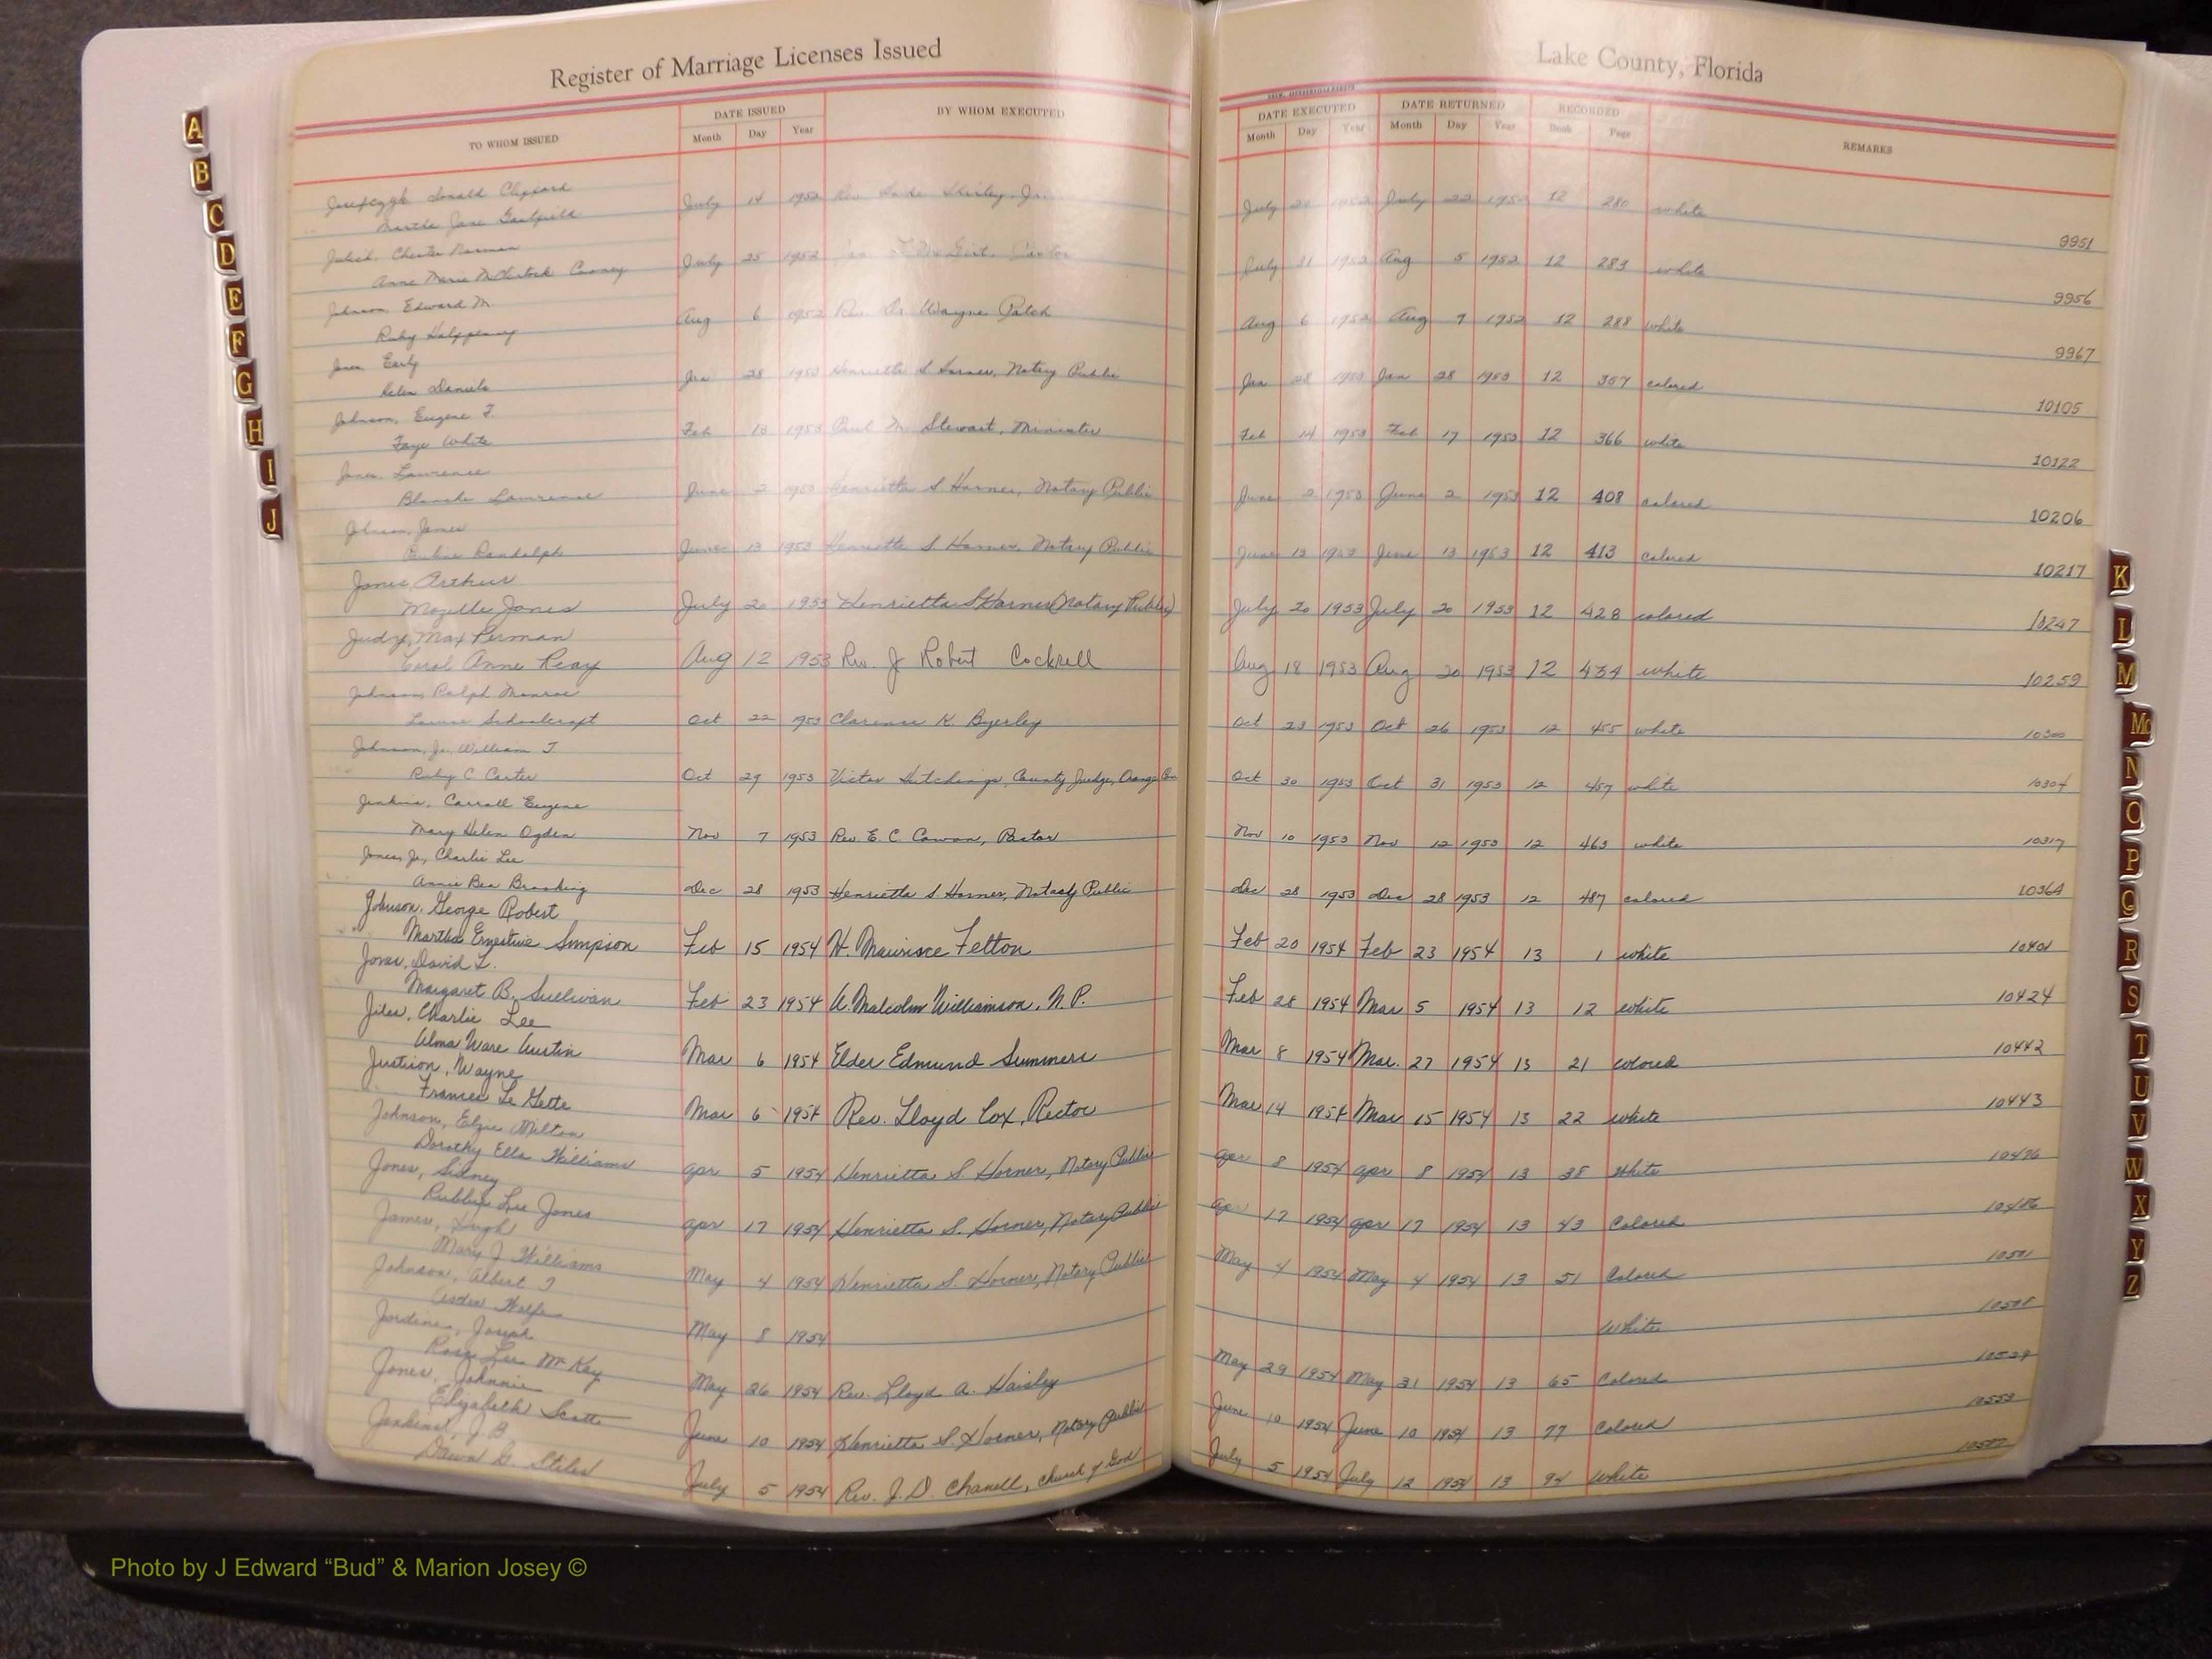 Register of Marriage Licenses Issued
Lake County, Florida
TO WHOM ISSUED
DATE ISSUED
Month Day Year
BY WHOM EXECUTED
DATE EXECUTED
Month Day Year
DATE RETURNED
Month Day Year
RECORDED
Book Page
REMARKS
Donald Clifford
Jane July 14 1952 Rev. Shirley, Jr. July 1952 July 22 1952 12 280 white 9951
Chester Norman
Anne Marie McClintock Cooney July 25 1952 July 31 1952 Aug 5 1952 12 283 white 9956
Johnson, Edward M.
Ruby Halfpenny Aug 6 1952 Rev. Wayne Patch Aug 6 1952 Aug 9 1952 12 288 white 9967
Jones, Early
Helen Daniels Jan 28 1953 Henrietta S. Horner, Notary Public Jan 28 1953 Jan 28 1953 12 357 colored 10105
Johnson, Eugene F.
Faye White Feb 13 1953 Paul M. Stewart, Minister Feb 14 1953 Feb 17 1953 12 366 white 10122
Jones, Lawrence
Blanche Lawrence June 2 1953 Henrietta S Horner, Notary Public June 2 1953 June 2 1953 12 408 colored 10206
Johnson, James
Randolph June 13 1953 Henrietta S. Horner, Notary Public June 13 1953 June 13 1953 12 413 colored 10217
Jones, Arthur
Mozelle Jones July 20 1953 Henrietta S Horner (Notary Public) July 20 1953 July 20 1953 12 428 colored 10247
Judy, Max Perman
Carol Anne Reay Aug 12 1953 Rev. J Robert Cockrell Aug 18 1953 Aug 20 1953 12 434 white 10259
Johnson, Ralph Monroe
Louise Schoolcraft Oct 22 1953 Clarence K. Byerley Oct 23 1953 Oct 26 1953 12 455 white 10300
Johnson, Jr., William T.
Ruby C Carter Oct 29 1953 Victor Hutchings, County Judge, Orange Co Oct 30 1953 Oct 31 1953 12 457 white 10304
Jenkins, Carroll Eugene
Mary Helen Ogden Nov 7 1953 Rev. E. C. Cowan, Pastor Nov 10 1953 Nov 12 1953 12 463 white 10317
Jones, Jr., Charlie Lee
Annie Bea Dec 28 1953 Henrietta S Horner, Notary Public Dec 28 1953 Dec 28 1953 12 487 colored 10364
Johnson, George Robert
Martha Ernestine Simpson Feb 15 1954 H. Maurice Felton Feb 20 1954 Feb 23 1954 13 1 white 10401
Jones, David L.
Margaret B. Sullivan Feb 23 1954 A. Malcolm Williamson, N.P. Feb 28 1954 Mar 5 1954 13 12 white 10424
Jiles, Charlie Lee
Alma Ware Austin Mar 6 1954 Elder Edmund Summers Mar 8 1954 Mar. 27 1954 13 21 colored 10442
Justison, Wayne
Frances Le Gette Mar 6 1954 Rev. Lloyd Cox, Rector Mar 14 1954 Mar 15 1954 13 22 white 10443
Johnson, Elzie Milton
Dorothy Ella Williams Apr 5 1954 Henrietta S. Horner, Notary Public Apr 8 1954 Apr 8 1954 13 38 White 10476
Jones, Sidney
Rubbie Lee Jones Apr 17 1954 Henrietta S. Horner, Notary Public Apr 17 1954 Apr 17 1954 13 43 Colored 10486
James, Hugh
Mary J Williams May 4 1954 Henrietta S. Horner, Notary Public May 4 1954 May 4 1954 13 51 Colored 10501
Johnson, Albert T
May 8 1954 White
Joseph
Rosa Lee McKay May 26 1954 Rev. Lloyd A. Haisley May 29 1954 May 31 1954 13 65 Colored 10529
Jones, Johnnie
Elizabeth Scott June 10 1954 Henrietta S. Horner, Notary Public June 10 1954 June 10 1954 13 77 Colored 10553
Jenkins, J. B.
G. Stiles July 5 1954 Rev. J. D. Chanell, Church of God July 5 1954 July 12 1954 13 94 White
A
B
C
D
E
F
G
H
I
J
K
L
M
Mc
N
O
P
Q
R
S
T
U
V
W
X
Y
Z
Photo by J Edward “Bud” & Marion Josey ©